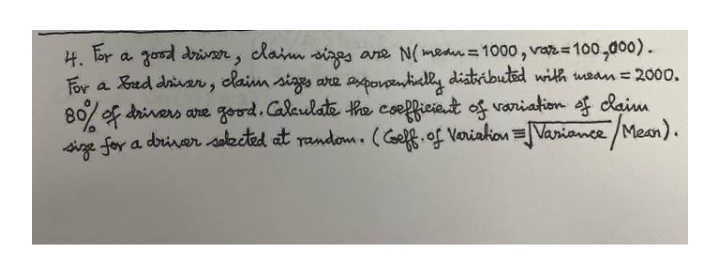 4. For a good driver, claim sizes are N(mean=1000, var=100,000).
For a Bad driver, claim sizes are exponentially distributed with mean = 2000.
80% of drivers are good. Calculate the coefficient of variation of claim
size for a driver selected at random. (Coeff. of Variation ≡ √Variance / Mean).